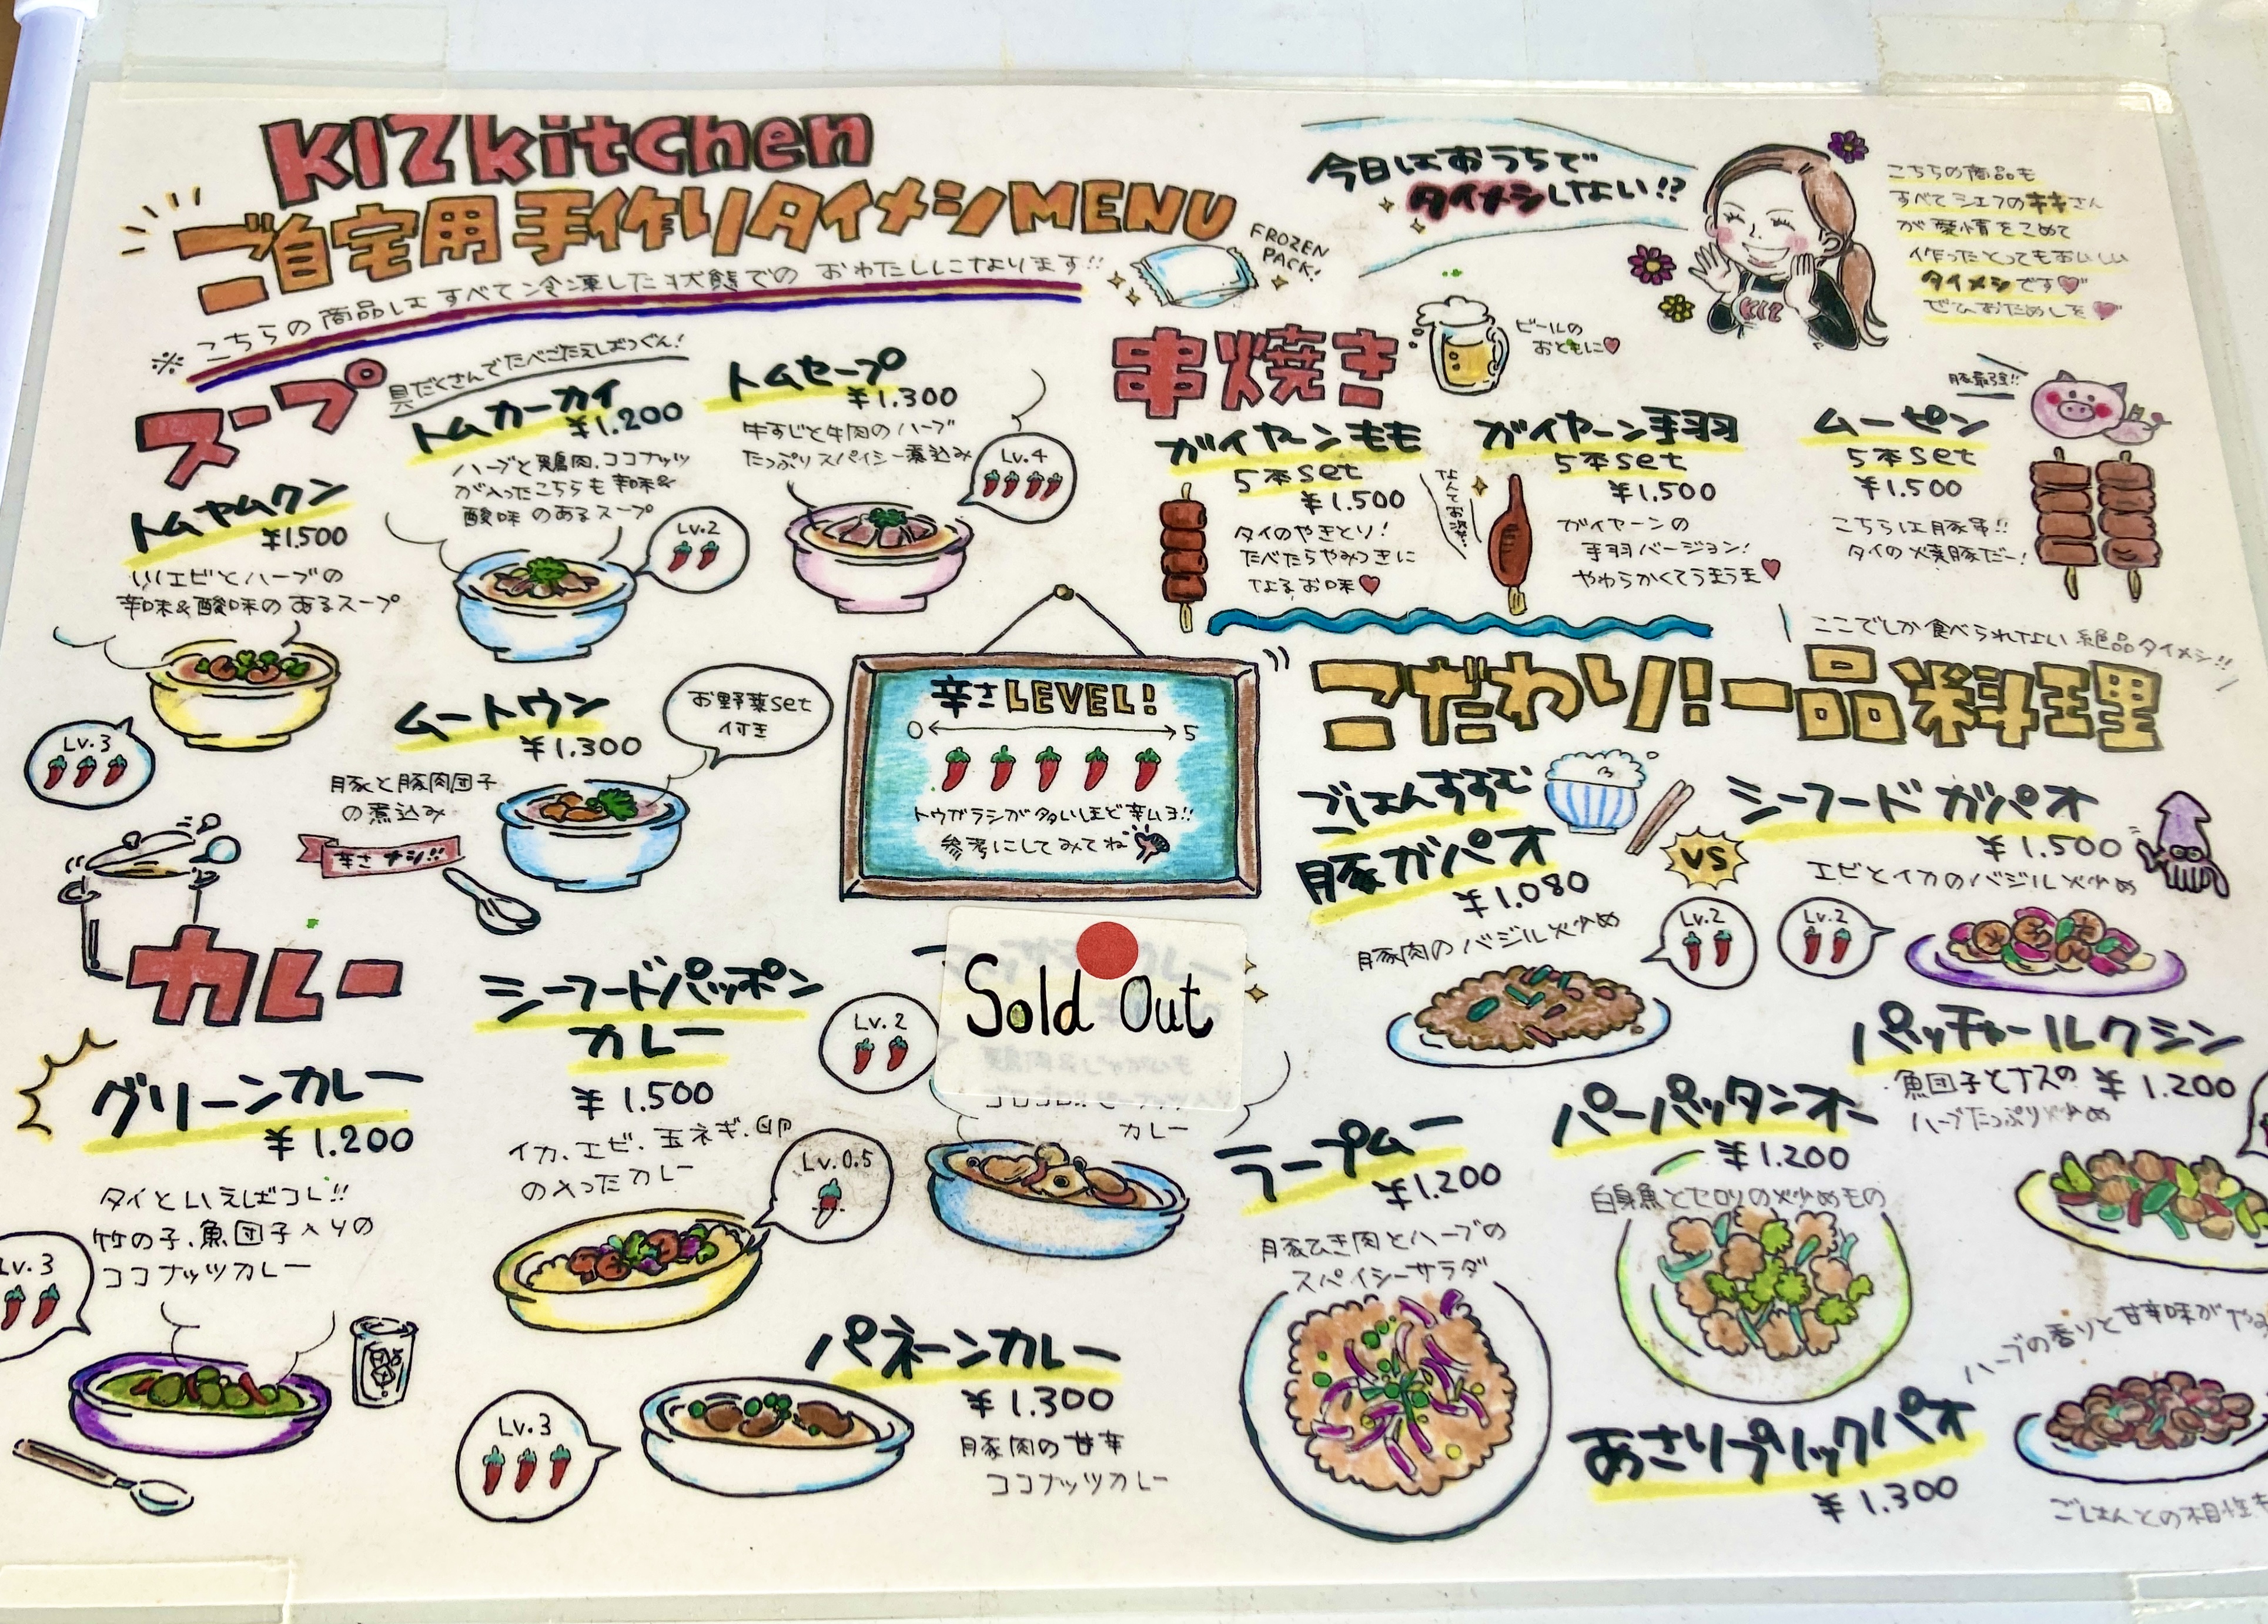 KIZkitchen
ご自宅用手作りタイメシMENU
※こちらの商品はすべて冷凍した状態でのおわたしになります!!
FROZEN
PACK!
今日はおうちで
タイメシしない!?
こちらの商品も
すべてシェフのキキさん
が愛情をこめて
作ったとってもおいしい
タイメシです
ぜひおためしを
KIZ
スープ
具だくさんでたべごたえばつぐん!
トムヤムクン
¥1.500
川エビとハーブの
辛味&酸味のあるスープ
Lv.3
トムカーカイ
¥1.200
ハーブと鶏肉、ココナッツ
が入ったこちらも辛味&
酸味のあるスープ
Lv.2
トムセープ
¥1.300
牛すじと牛肉のハーブ
たっぷりスパイシー煮込み
Lv.4
ムートウン
¥1.300
お野菜set
付き
豚と豚肉団子
の煮込み
辛さナシ!!
辛さLEVEL!
0 5
トウガラシが多いほど辛いヨ!!
参考にしてみてね
串焼き
ビールの
おともに
ガイヤーンもも
5本set
¥1.500
タイのやきとり!
たべたらやみつきに
なるお味
ガイヤーン手羽
5本set
¥1.500
なんてお姿…
ガイヤーンの
手羽バージョン!
やわらかくてうまうま
ムーピン
5本set
¥1.500
豚最強!!
こちらは豚串!!
タイの焼豚だー!
ここでしか食べられない絶品タイメシ!!
こだわり!一品料理
ごはんすすむ
豚ガパオ
¥1.080
豚肉のバジル炒め
Lv.2
VS
シーフードガパオ
¥1.500
エビとイカのバジル炒め
Lv.2
パッチャールクシン
¥1.200
魚団子とナスの
ハーブたっぷり炒め
ラープムー
¥1.200
豚ひき肉とハーブの
スパイシーサラダ
パーパッタンオー
¥1.200
白身魚とセロリの炒めもの
あさりプリックパオ
¥1.300
ハーブの香りと甘辛味が
ごはんとの相性も
カレー
グリーンカレー
¥1.200
タイといえばコレ!!
竹の子、魚団子入りの
ココナッツカレー
Lv.3
シーフードパッポン
カレー
¥1.500
イカ、エビ、玉ネギ、卵
の入ったカレー
Lv.0.5
Lv.2
Sold Out
カレー
パネーンカレー
¥1.300
豚肉の甘辛
ココナッツカレー
Lv.3